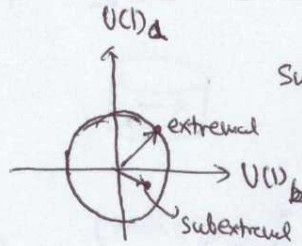 U(1)a
Su
extremal
U(1)b
subextremal